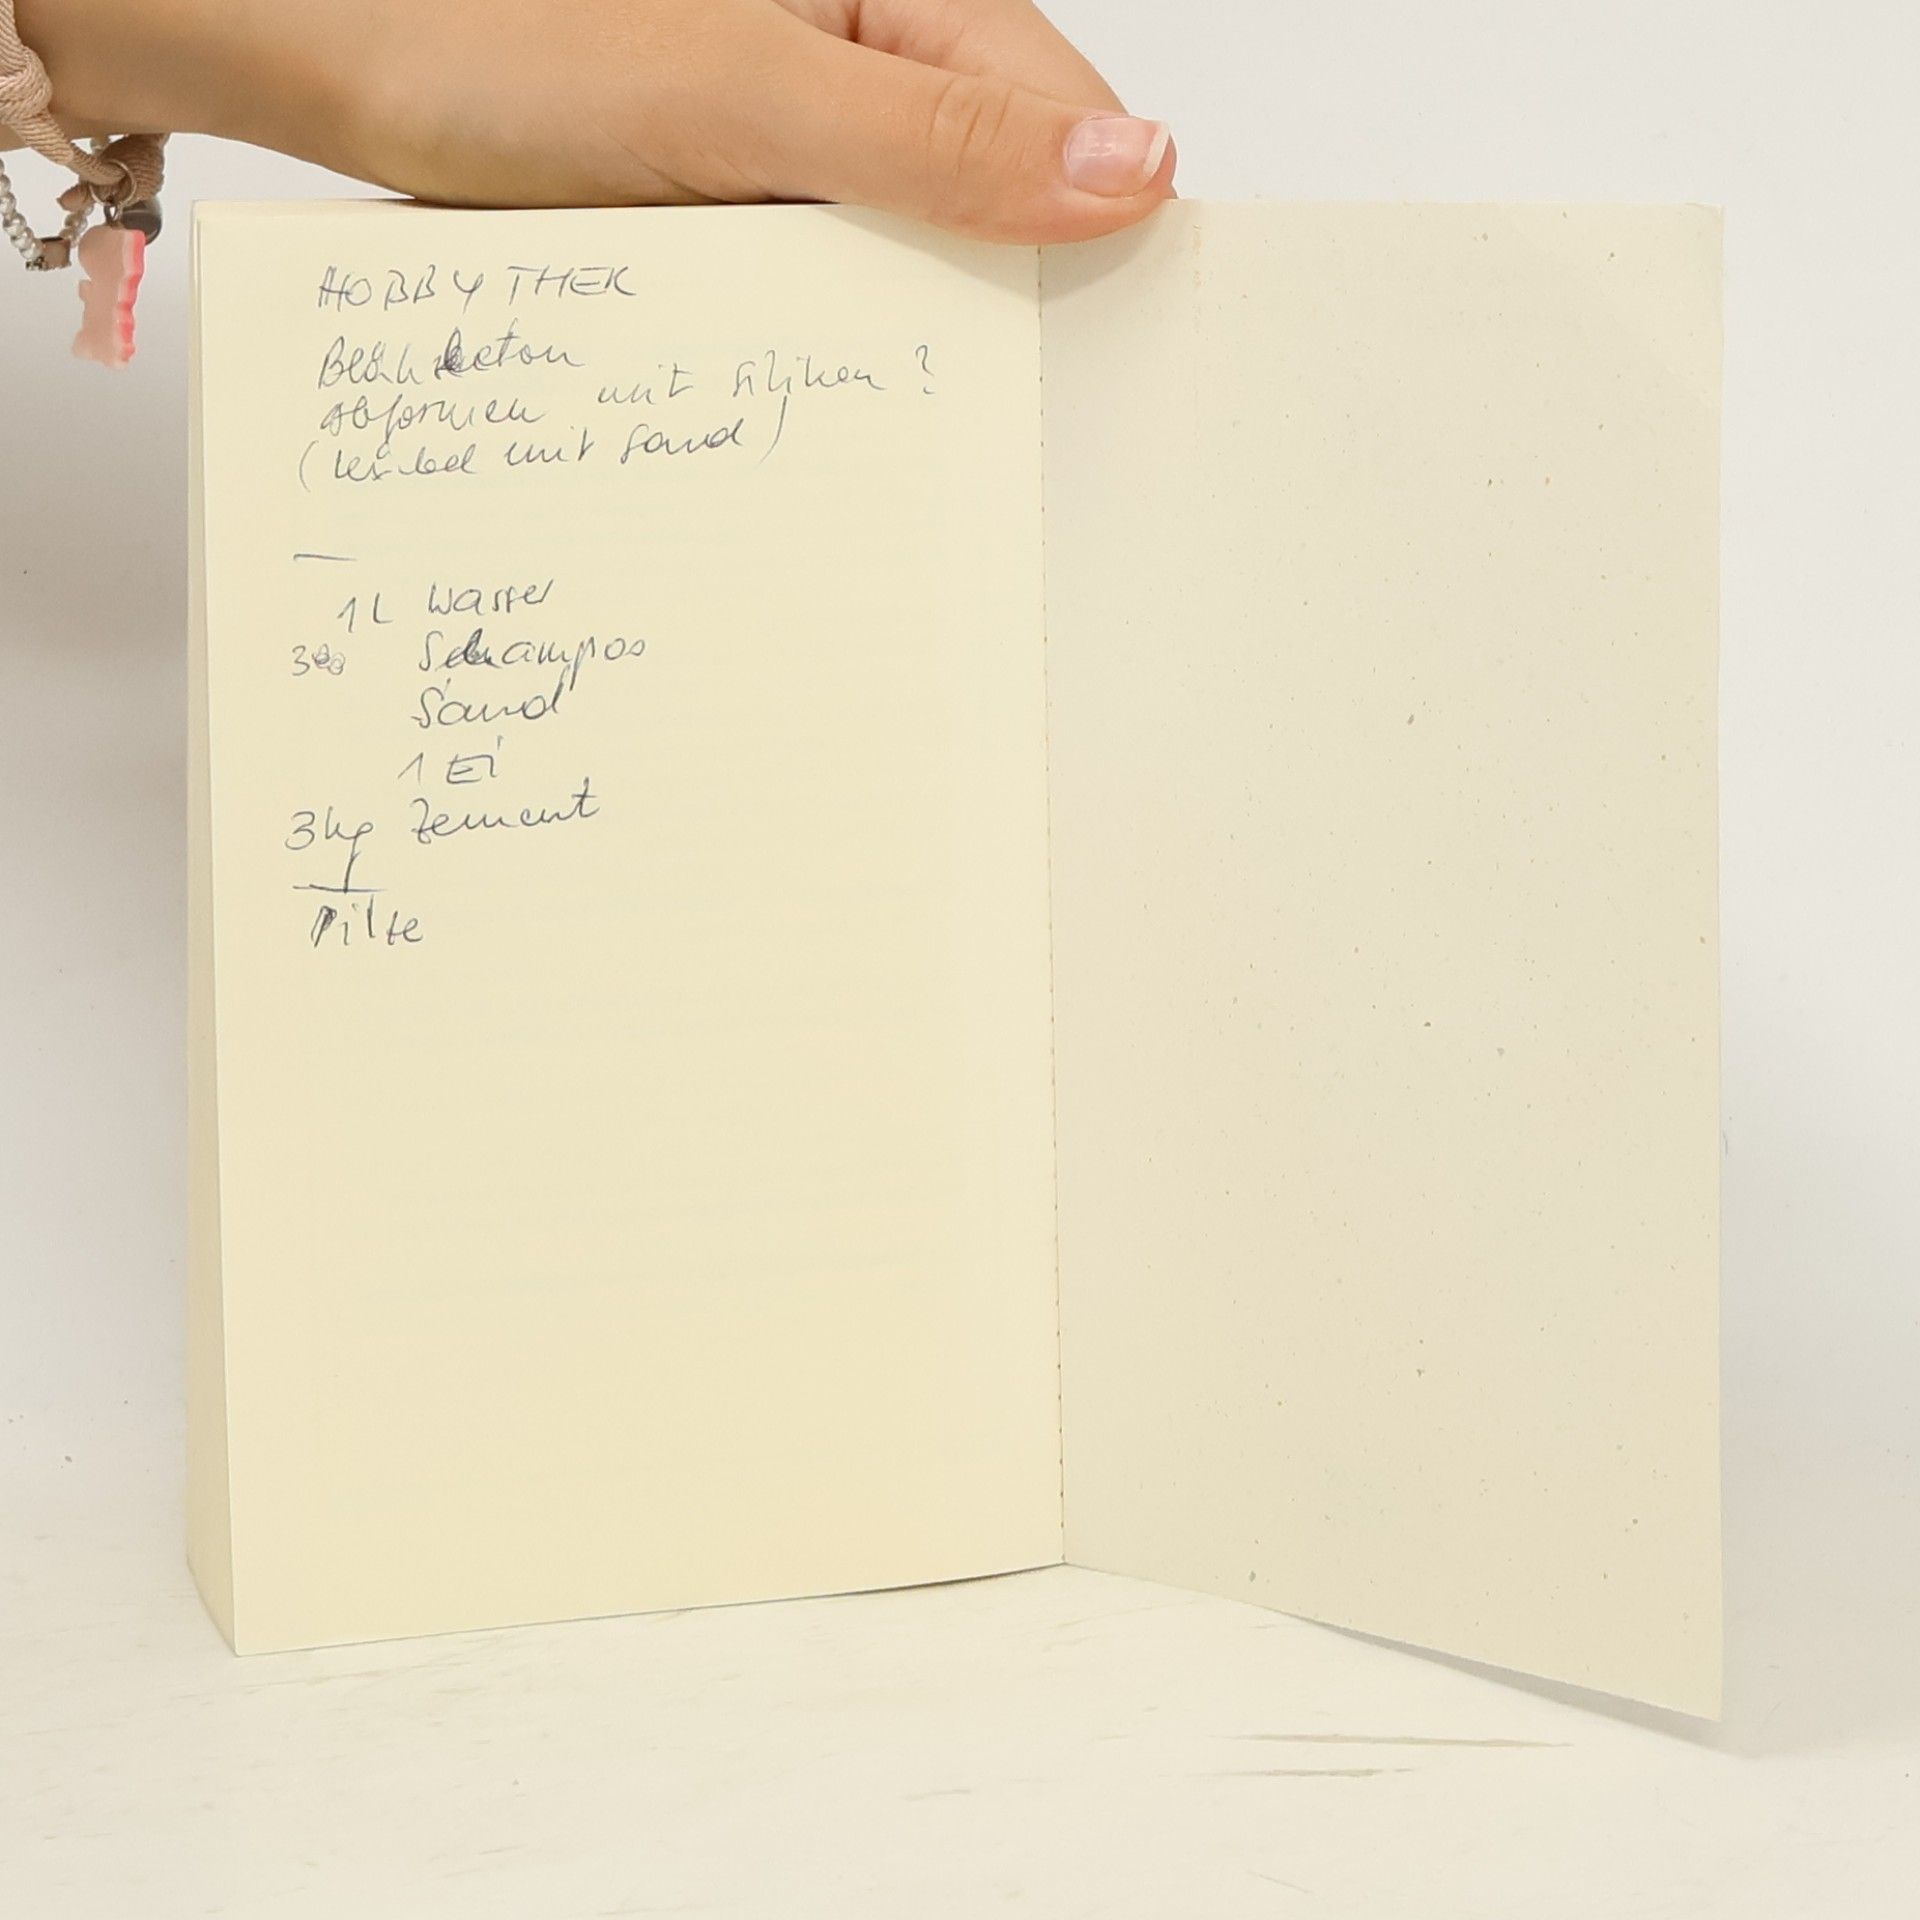 HOBBYTHEK
Blähbeton
abformen mit Silikon ?
( mit Sand )
1 L Wasser
Schampoo
Sand
1 Ei
3 kg Zement
Pilze